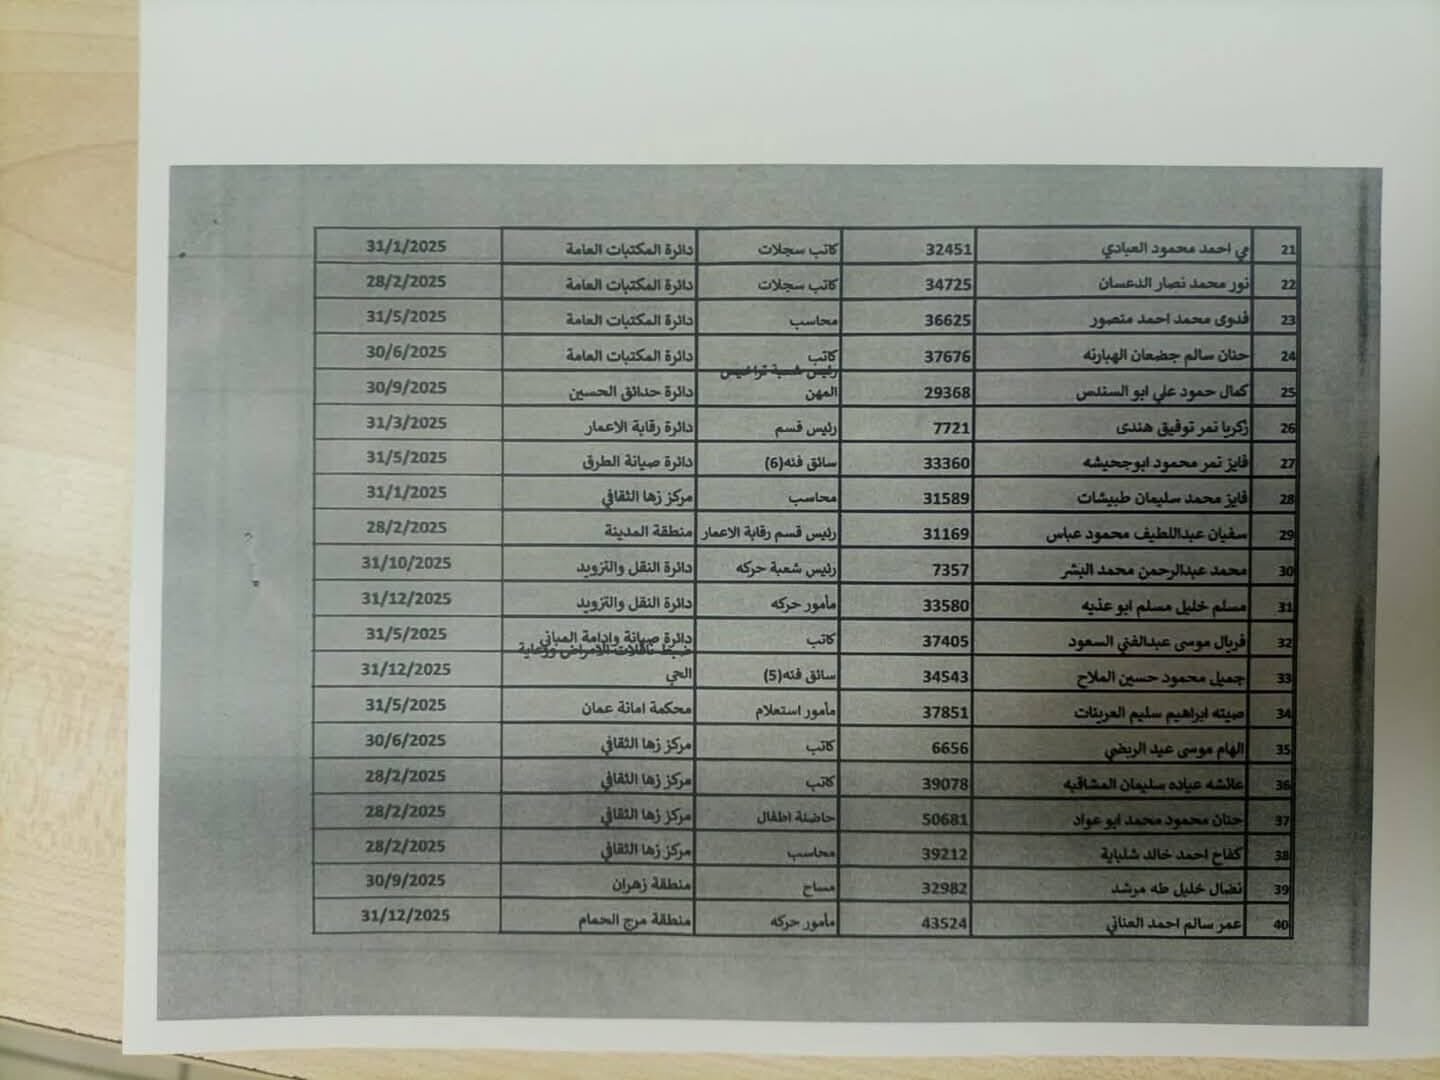 21 مي احمد محمود العبادي 32451 كاتب سجلات دائرة المكتبات العامة 31/1/2025
22 نور محمد نصار الدعسان 34725 كاتب سجلات دائرة المكتبات العامة 28/2/2025
23 فدوى محمد احمد منصور 36625 محاسب دائرة المكتبات العامة 31/5/2025
24 حنان سالم جضعان الهبارنه 37676 كاتب دائرة المكتبات العامة 30/6/2025
25 كمال حمود علي ابو السندس 29368 رئيس شعبة تراخيص المهن دائرة حدائق الحسين 30/9/2025
26 زكريا نمر توفيق هندى 7721 رئيس قسم دائرة رقابة الاعمار 31/3/2025
27 فايز نمر محمود ابوجحيشه 33360 سائق فئه(6) دائرة صيانة الطرق 31/5/2025
28 فايز محمد سليمان طبيشات 31589 محاسب مركز زها الثقافي 31/1/2025
29 سفيان عبداللطيف محمود عباس 31169 رئيس قسم رقابة الاعمار منطقة المدينة 28/2/2025
30 محمد عبدالرحمن محمد البشر 7357 رئيس شعبة حركه دائرة النقل والتزويد 31/10/2025
31 مسلم خليل مسلم ابو عذيه 33580 مأمور حركه دائرة النقل والتزويد 31/12/2025
32 فريال موسى عبدالغني السعود 37405 كاتب دائرة صيانة وإدامة المباني 31/5/2025
33 جميل محمود حسين الملاح 34543 سائق فئه(5) ضبط ناقلات الامراض ورعاية الحي 31/12/2025
34 صيته ابراهيم سليم العرينات 37851 مأمور استعلام محكمة امانة عمان 31/5/2025
35 الهام موسى عيد الربضي 6656 كاتب مركز زها الثقافي 30/6/2025
36 عائشه عياده سليمان المشاقبه 39078 كاتب مركز زها الثقافي 28/2/2025
37 حنان محمود محمد ابو عواد 50681 حاضنة اطفال مركز زها الثقافي 28/2/2025
38 كفاح احمد خالد شلباية 39212 محاسب مركز زها الثقافي 28/2/2025
39 نضال خليل طه مرشد 32982 مساح منطقة زهران 30/9/2025
40 عمر سالم احمد العناني 43524 مأمور حركه منطقة مرج الحمام 31/12/2025